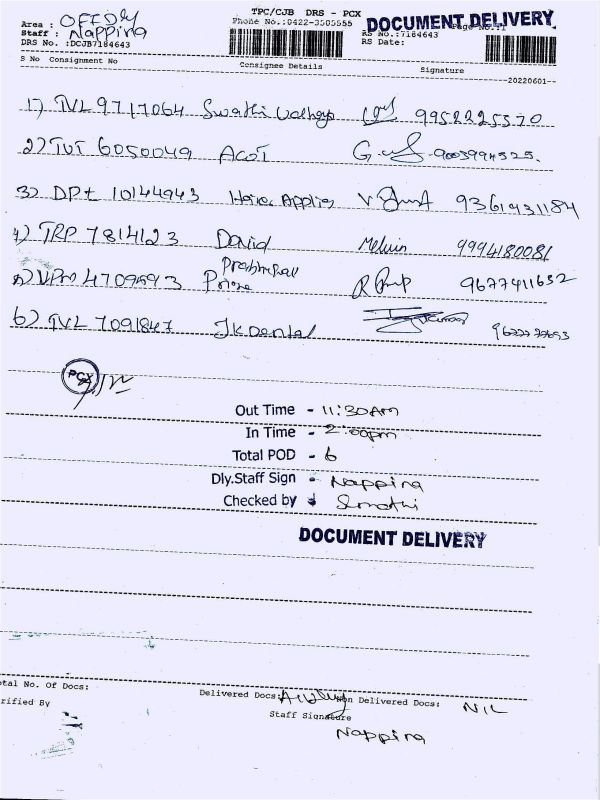 TPC/CJB DRS - PCX
Area : OFFDly
Phone No.:0422-3505555
DOCUMENT DELIVERY
Page No.:1
Staff : Nappina
RS No.:7184643
DRS No. :DCJB7184643
RS Date:
S No Consignment No Consignee Details Signature
20220601
1) TVL 9717064 Swathi 9952225570
2) TUT 6050049 ACOT 9003994525.
3) DPI 10144943 9361431184
4) TRP 7814123 David Melvin 9994180081
5) VPM 4709593 Prime 9677411652
6) TVL 7091847 JK Dental
PCX
Out Time - 11:30Am
In Time - 2:00pm
Total POD - 6
Dly.Staff Sign - Nappina
Checked by
DOCUMENT DELIVERY
otal No. Of Docs:
Delivered Docs: Non Delivered Docs: NIL
rified By
Staff Signature
Nappina